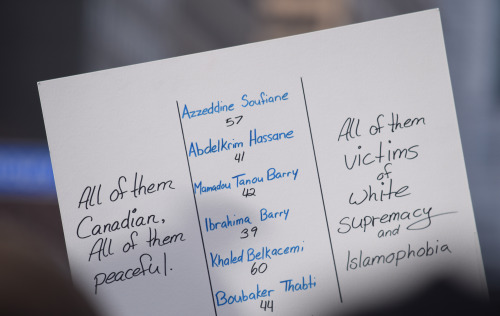 All of them
Canadian.
All of them
peaceful.
Azzeddine Soufiane
57
Abdelkrim Hassane
41
Mamadou Tanou Barry
42
Ibrahima Barry
39
Khaled Belkacemi
60
Boubaker Thabti
44
All of them
victims
of
white
supremacy
and
Islamophobia